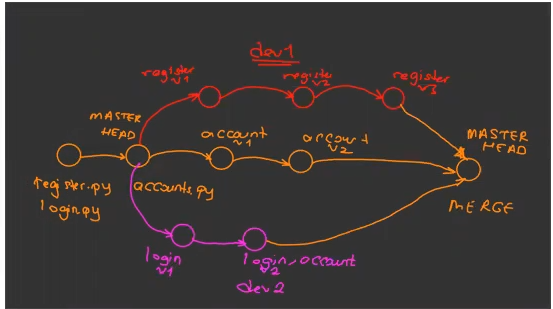 dev1
register
v1
register
v2
register
v3
MASTER
HEAD
account
v1
account
v2
MASTER
HEAD
register.py
login.py
accounts.py
MERGE
login
v1
login, account
v2
dev2